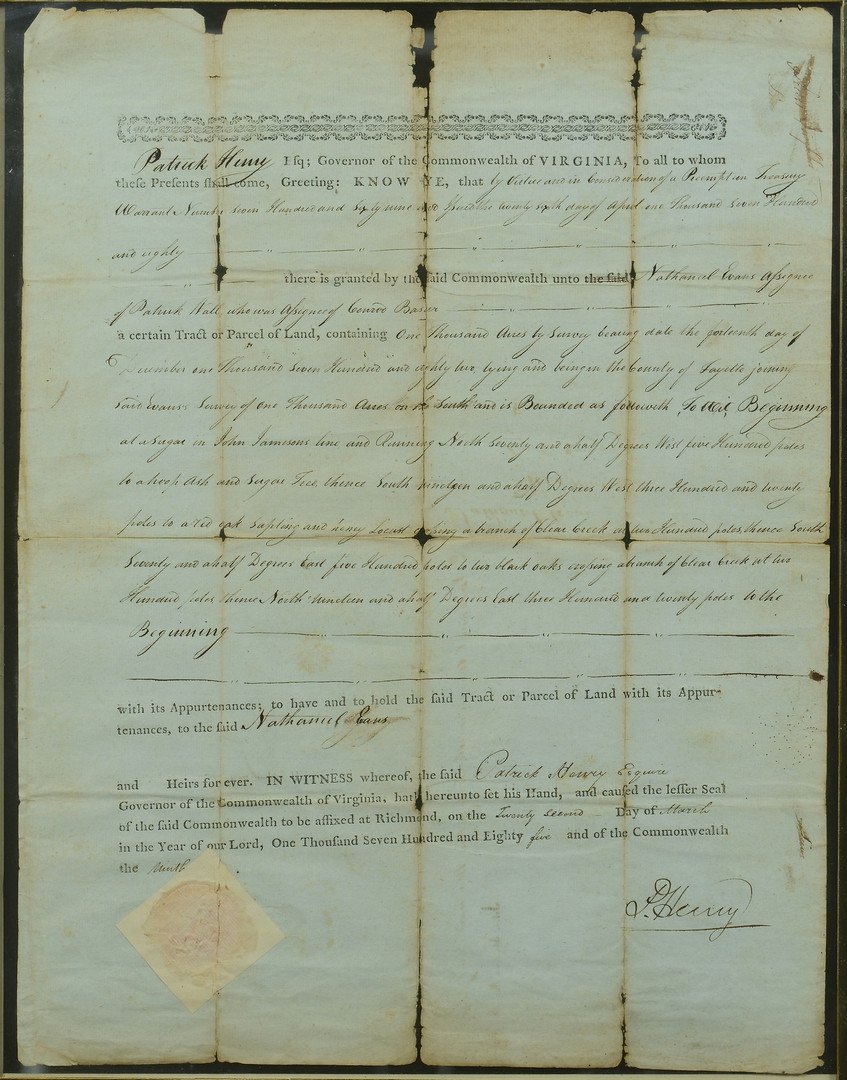 Patrick Henry Esq; Governor of the Commonwealth of VIRGINIA, To all to whom
these Presents shall come, Greeting: KNOW YE, that by Virtue and in Consideration of a Preemption Treasury
Warrant Number seven Hundred and sixty nine and Issued the twenty sixth day of April one Thousand Seven Hundred
and eighty
there is granted by the said Commonwealth unto the said Nathaniel Evans Assignee
of Patrick Wall who was Assignee of
a certain Tract or Parcel of Land, containing One Thousand Acres by Survey bearing date the day of
December one Thousand Seven Hundred and eighty two, lying and being in the County of Fayette joining
said Evans's Survey of one Thousand Acres on the South and is Bounded as followith To Wit, Beginning
at a Sugar in John Jamesons line, and Running North Seventy and a half Degrees West five Hundred poles
to a hoop Ash and Sugar Tree, thence South nineteen and a half Degrees West three Hundred and twenty
poles to a red oak Sapling and honey Locust crossing a branch of Clear Creek at two Hundred poles, thence South
Seventy and a half Degrees East five Hundred poles to two black oaks crossing a branch of Clear Creek at two
Hundred poles thence North nineteen and a half Degrees East three Hundred and twenty poles to the
Beginning
with its Appurtenances; to have and to hold the said Tract or Parcel of Land with its Appur-
tenances, to the said Nathaniel Evans
and Heirs for ever. IN WITNESS whereof, the said Patrick Henry Esquire
Governor of the Commonwealth of Virginia, hath hereunto set his Hand, and caused the lesser Seal
of the said Commonwealth to be affixed at Richmond, on the Twenty second Day of March
in the Year of our Lord, One Thousand Seven Hundred and Eighty five and of the Commonwealth
the Ninth .
P. Henry